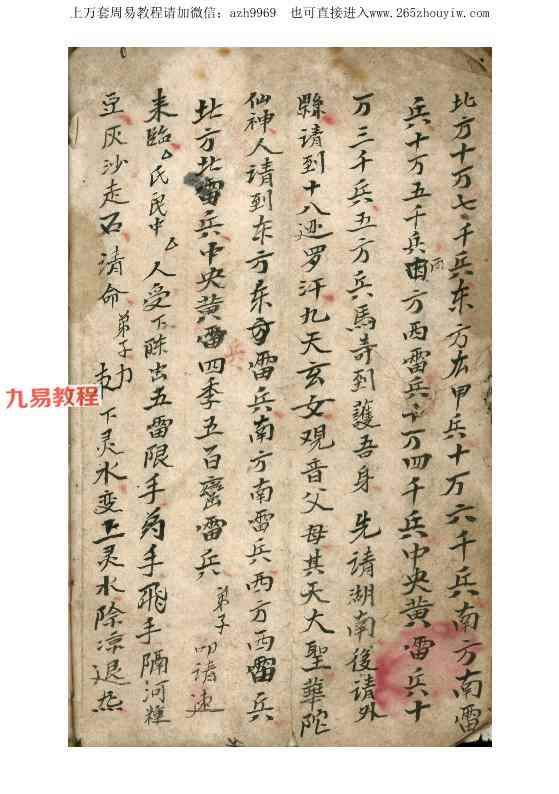 上万套周易教程请加微信：azh9969 也可直接进入www.265zhouyiw.com
北方十万七千兵东方左甲兵十万六千兵南方南雷
兵十万五千兵西方西雷兵十万四千兵中央黄雷兵十
万三千兵五方兵馬寺到護吾身 先请湖南後请外
縣请到十八迹罗汗九天玄女观音父母其天大聖華陀
仙神人请到东方东方雷兵南方南雷兵西方西雷兵
北方北雷兵中央黄雷四季五百蛮雷兵 弟子叩请速
来臨 氏民中 人受下 出五雷限手为手飛手隔河
豆灰沙走石 请命弟子力 下灵水变上灵水除凉退热
兵
九易教程